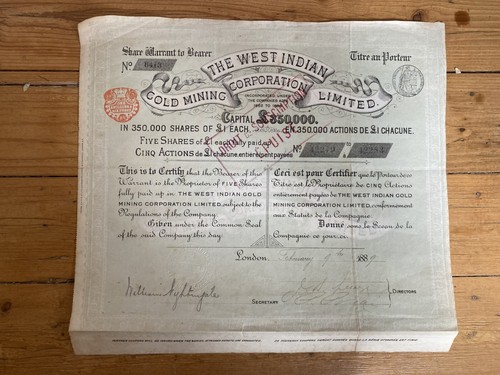 Share Warrant to Bearer
Titre au Porteur
No 8413
THE WEST INDIAN
GOLD MINING CORPORATION LIMITED.
INCORPORATED UNDER
THE COMPANIES ACTS
CAPITAL £350,000.
IN 350,000 SHARES OF £1 EACH.
EN 350,000 ACTIONS DE £1 CHACUNE.
FIVE SHARES of £1 each fully paid up
CINQ ACTIONS de £1 chacune entièrement payées
No
This is to Certify that the Bearer of this
Warrant is the Proprietor of FIVE Shares
fully paid up in THE WEST INDIAN GOLD
MINING CORPORATION LIMITED, subject to the
Regulations of the Company.
Given under the Common Seal
of the said Company this day.
Ceci est pour Certifier que le Porteur de ce
Titre est le Propriétaire de CINQ Actions
entièrement payées de THE WEST INDIAN GOLD
MINING CORPORATION LIMITED, conformément
aux Statuts de la Compagnie.
Donné sous le Sceau de la
Compagnie ce jour.
London, February 9th 1889
William Nightingale
DIRECTORS
SECRETARY